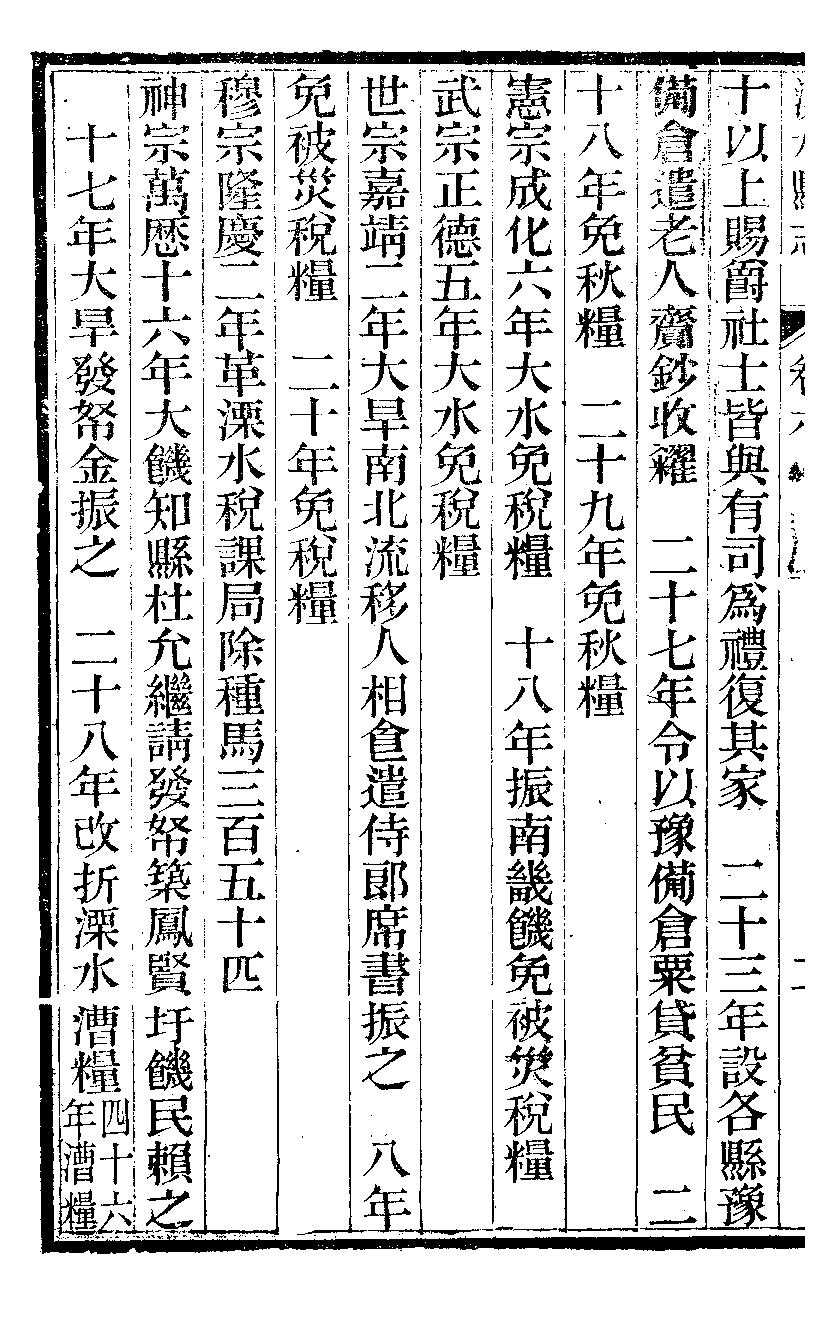 十以上賜爵社士皆與有司爲禮復其家　二十三年設各縣豫
備倉遣老人齎鈔收糴　二十七年令以豫備倉粟貸貧民　二
十八年免秋糧　二十九年免秋糧
憲宗成化六年大水免稅糧　十八年振南畿饑免被災稅糧
武宗正德五年大水免稅糧
世宗嘉靖二年大旱南北流移人相食遣侍郎席書振之　八年
免被災稅糧　二十年免稅糧
穆宗隆慶二年革溧水稅課局除種馬三百五十匹
神宗萬歷十六年大饑知縣杜允繼請發帑築鳳賢圩饑民賴之
十七年大旱發帑金振之　二十八年改折溧水漕糧四十六
年漕糧